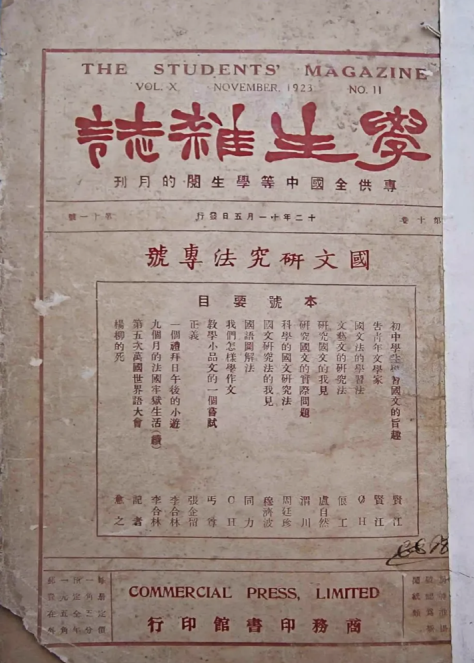 THE STUDENTS' MAGAZINE
VOL. X NOVEMBER, 1923 NO. 11
學生雜誌
專供全國中等學生閱的月刊
第十卷 十二年十一月五日發行 第十一號
國文研究法專號
本號要目
初中學生學習國文的旨趣 賢江
告青年文學家 賢江
國文法的學習法 C H
文藝文的研究法 偃工
研究國文的我見 盧自然
研究國文的實際問題 渭川
科學的國文研究法 周廷珍
國文研究法的我見 穆濟波
國語圖解法 同力
我們怎樣學作文 C H
教學小品文的一個嘗試 丐尊
正義 張企留
一個禮拜日午後的小遊 李合林
九個月的法國牢獄生活(續) 李合林
第五次萬國世界語大會 記者
楊柳的死 意之
COMMERCIAL PRESS, LIMITED
商務印書館印行